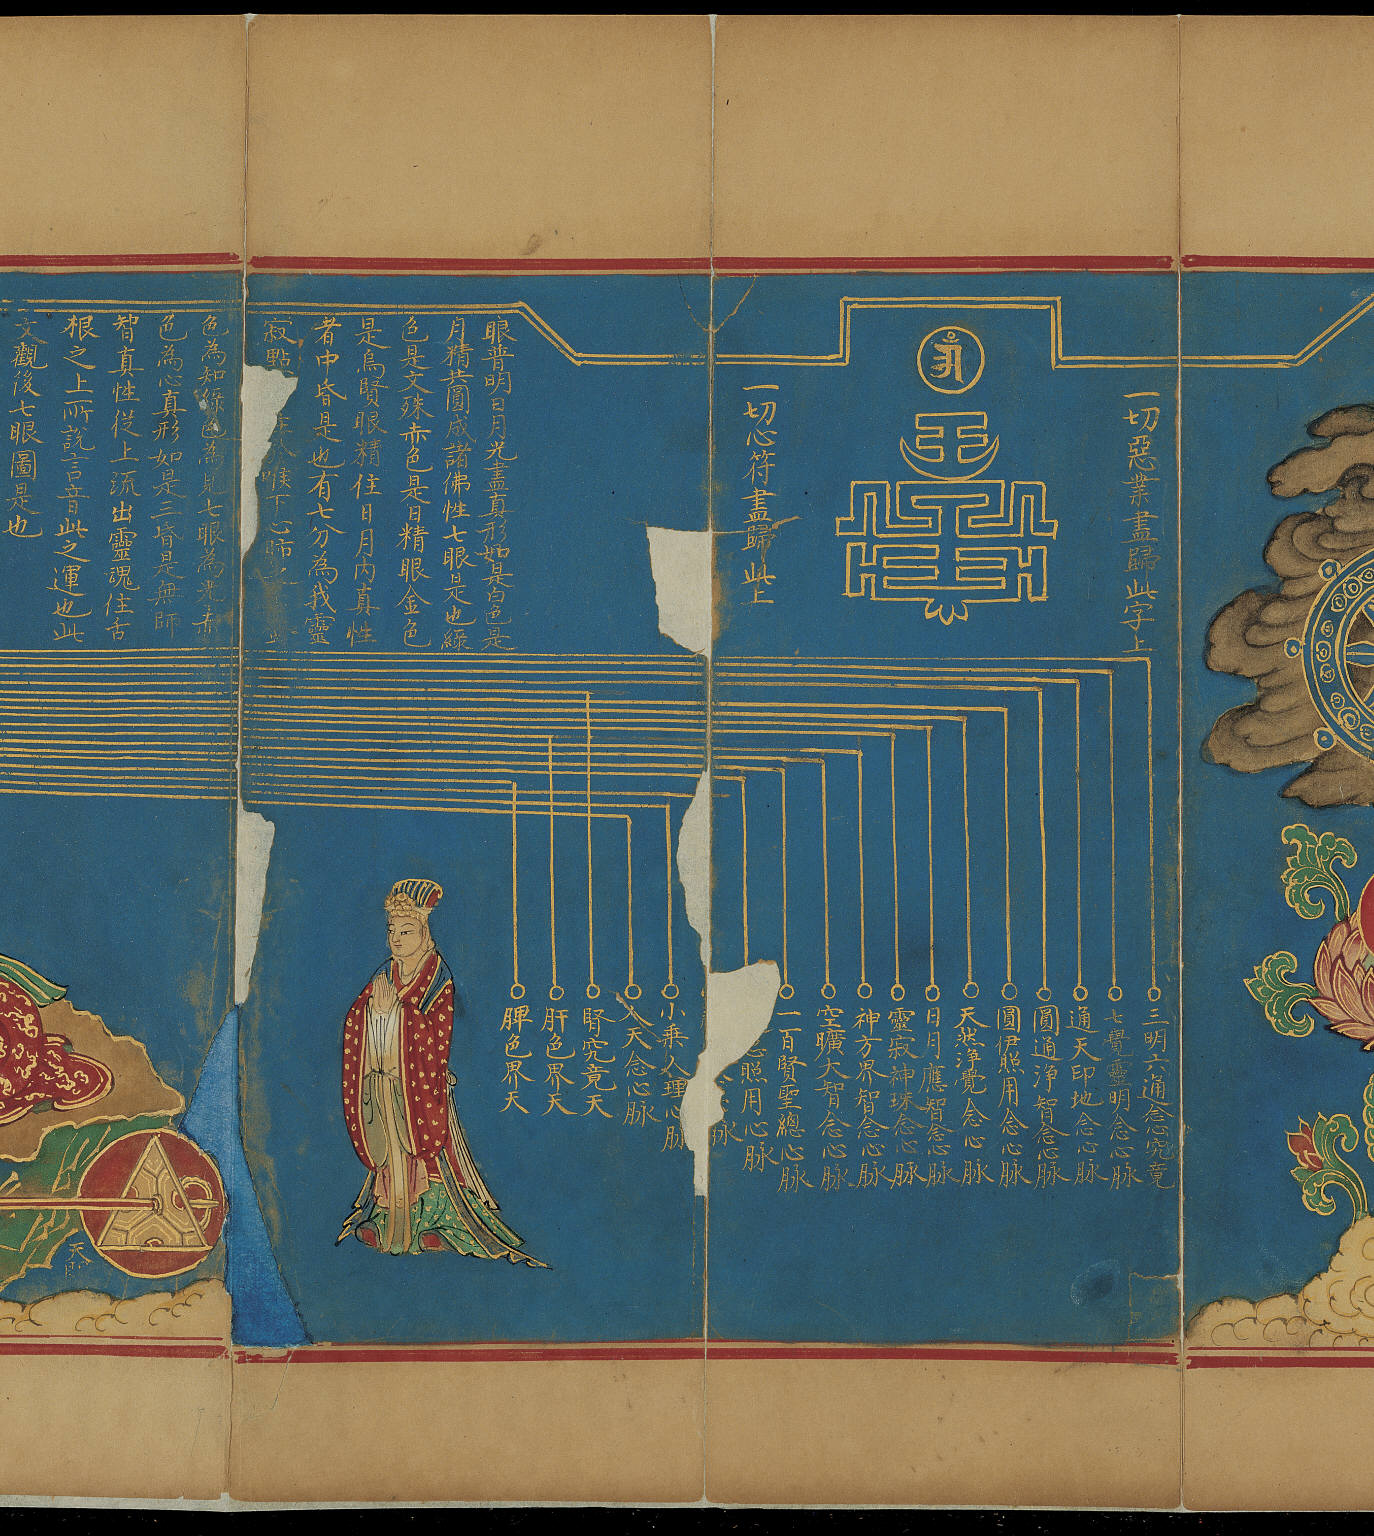 一切惡業盡歸此字上
一切心符盡歸此上
三明六通念念究竟
七覺靈明念心脉
通天印地念心脉
圓通浄智念心脉
圓伊照用念心脉
天然浄覺念心脉
日月應智念心脉
靈寂神珠念心脉
神方界智念心脉
空曠大智念心脉
一百賢聖總心脉
照用心脉
脉
小乗人理心脉
入天念心脉
腎究竟天
肝色界天
脾色界天
眼普明日月光盡真形如是白色是
月精共圓成諸佛性七眼是也綠
色是文殊赤色是日精眼金色
是烏賢眼精住日月内真性
者中昏是也有七分為我靈
寂點
喉下心肺
色為知綠色為見七眼為光赤
色為心真形如是三昏是無師
智真性從上流出靈魂住舌
根之上所說言音此之運也此
文觀後七眼圖是也
天